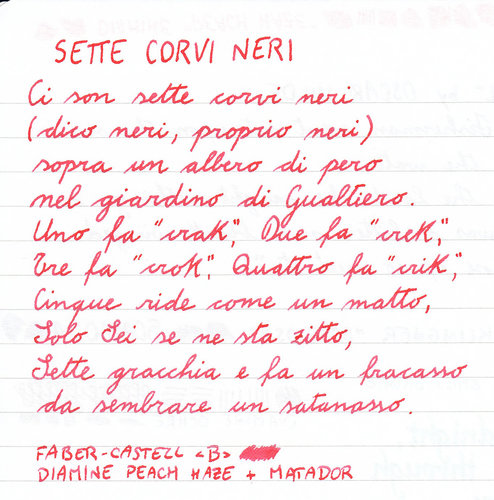 SETTE CORVI NERI
Ci son sette corvi neri
(dico neri, proprio neri)
sopra un albero di pero
nel giardino di Gualtiero.
Uno fa "crak", Due fa "crek",
Tre fa "crok", Quattro fa "crik",
Cinque ride come un matto,
Solo Sei se ne sta zitto,
Sette gracchia e fa un fracasso
da sembrare un satanasso.
FABER-CASTELL <B>
DIAMINE PEACH HAZE + MATADOR